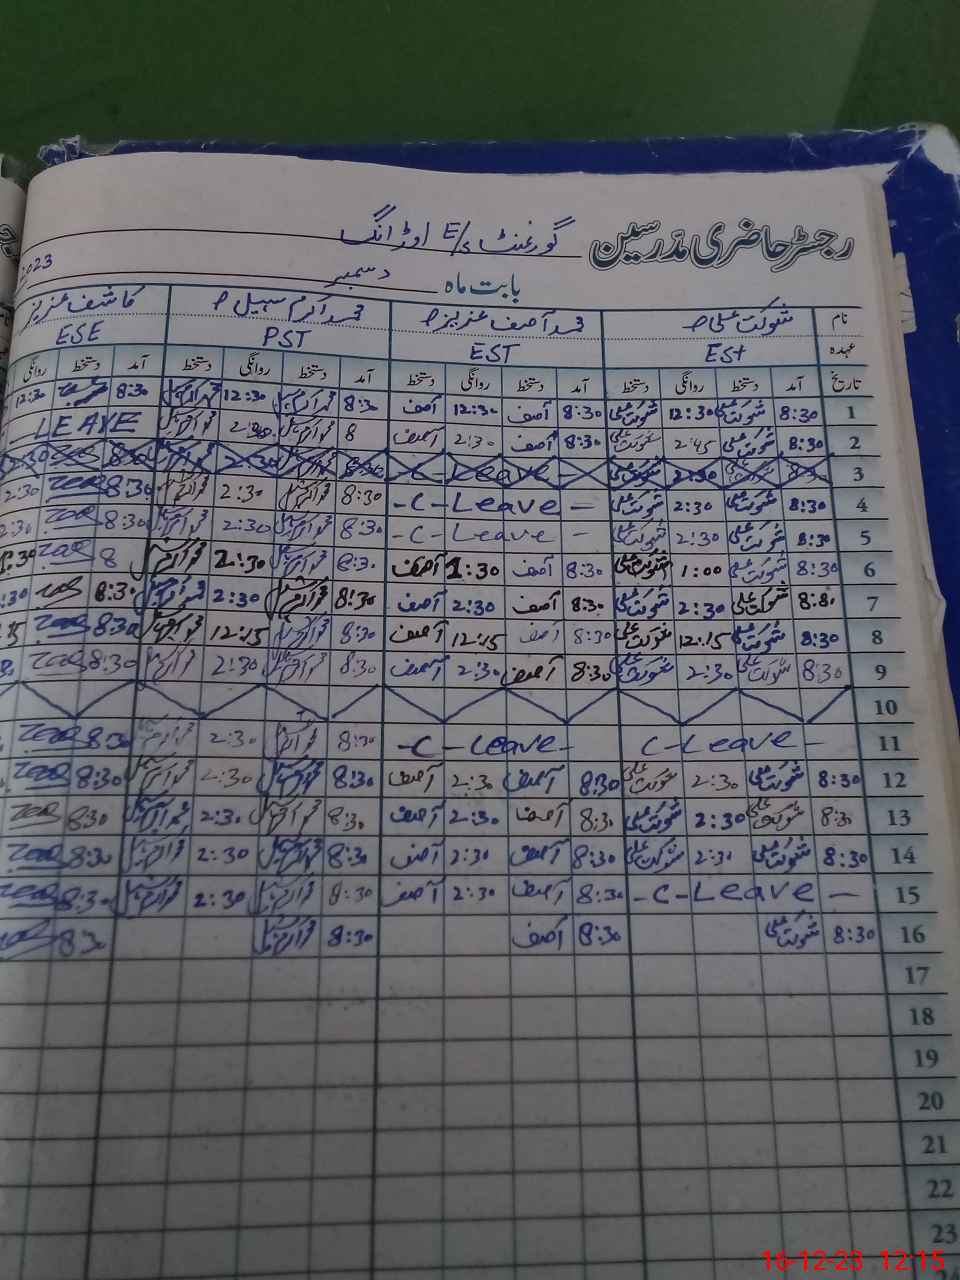 رجسٹر حاضری مدرسین گورنمنٹ E/S اوڈانگ
بابت ماہ دسمبر 2023
نام شوکت علی محمد آصف عزیز محمد اکرم سہیل کاشف عزیز
عہدہ ESt EST PST ESE
تاریخ آمد دستخط روانگی دستخط آمد دستخط روانگی دستخط آمد دستخط روانگی دستخط آمد دستخط روانگی
1 8:30 شوکت علی 12:30 شوکت علی 8:30 آصف 12:30 آصف 8:30 12:30 8:30 12:30
2 8:30 شوکت علی 2:45 شوکت علی 8:30 آصف 2:30 آصف 8 2:30 LEAVE
3 شوکت علی 2:30 شوکت علی C-Leave 2:30 8:30 2:30
4 8:30 شوکت علی 2:30 شوکت علی -C-Leave- 8:30 2:30 8:30 2:30
5 8:30 شوکت علی 2:30 شوکت علی -C-Leave- 8:30 2:30 8:30 2:30
6 8:30 شوکت علی 1:00 شوکت علی 8:30 آصف 1:30 آصف 8:30 2:30 8
7 شوکت علی 2:30 شوکت علی 8:30 آصف 2:30 آصف 8:30 2:30 8:30 :30
8 8:30 شوکت علی 12:15 شوکت علی 8:30 آصف 12:15 آصف 8:30 12:15 8:30
9 8:30 شوکت علی 2:30 شوکت علی 8:30 آصف 2:30 آصف 8:30 2:30 8:30
10
11 C-Leave- -C-Leave- 8:30 2:30 8:30
12 8:30 شوکت علی 2:30 شوکت علی 8:30 آصف 2:30 آصف 8:30 2:30 8:30
13 8:30 شوکت علی 2:30 شوکت علی 8:30 آصف 2:30 آصف 8:30 2:30 8:30
14 8:30 شوکت علی 2:30 شوکت علی 8:30 آصف 2:30 آصف 8:30 2:30 8:30
15 -C-Leave- 8:30 آصف 2:30 آصف 8:30 2:30 8:30
16 8:30 شوکت علی 8:30 آصف 8:30 8:30
17
18
19
20
21
22
23
16-12-23 12:15